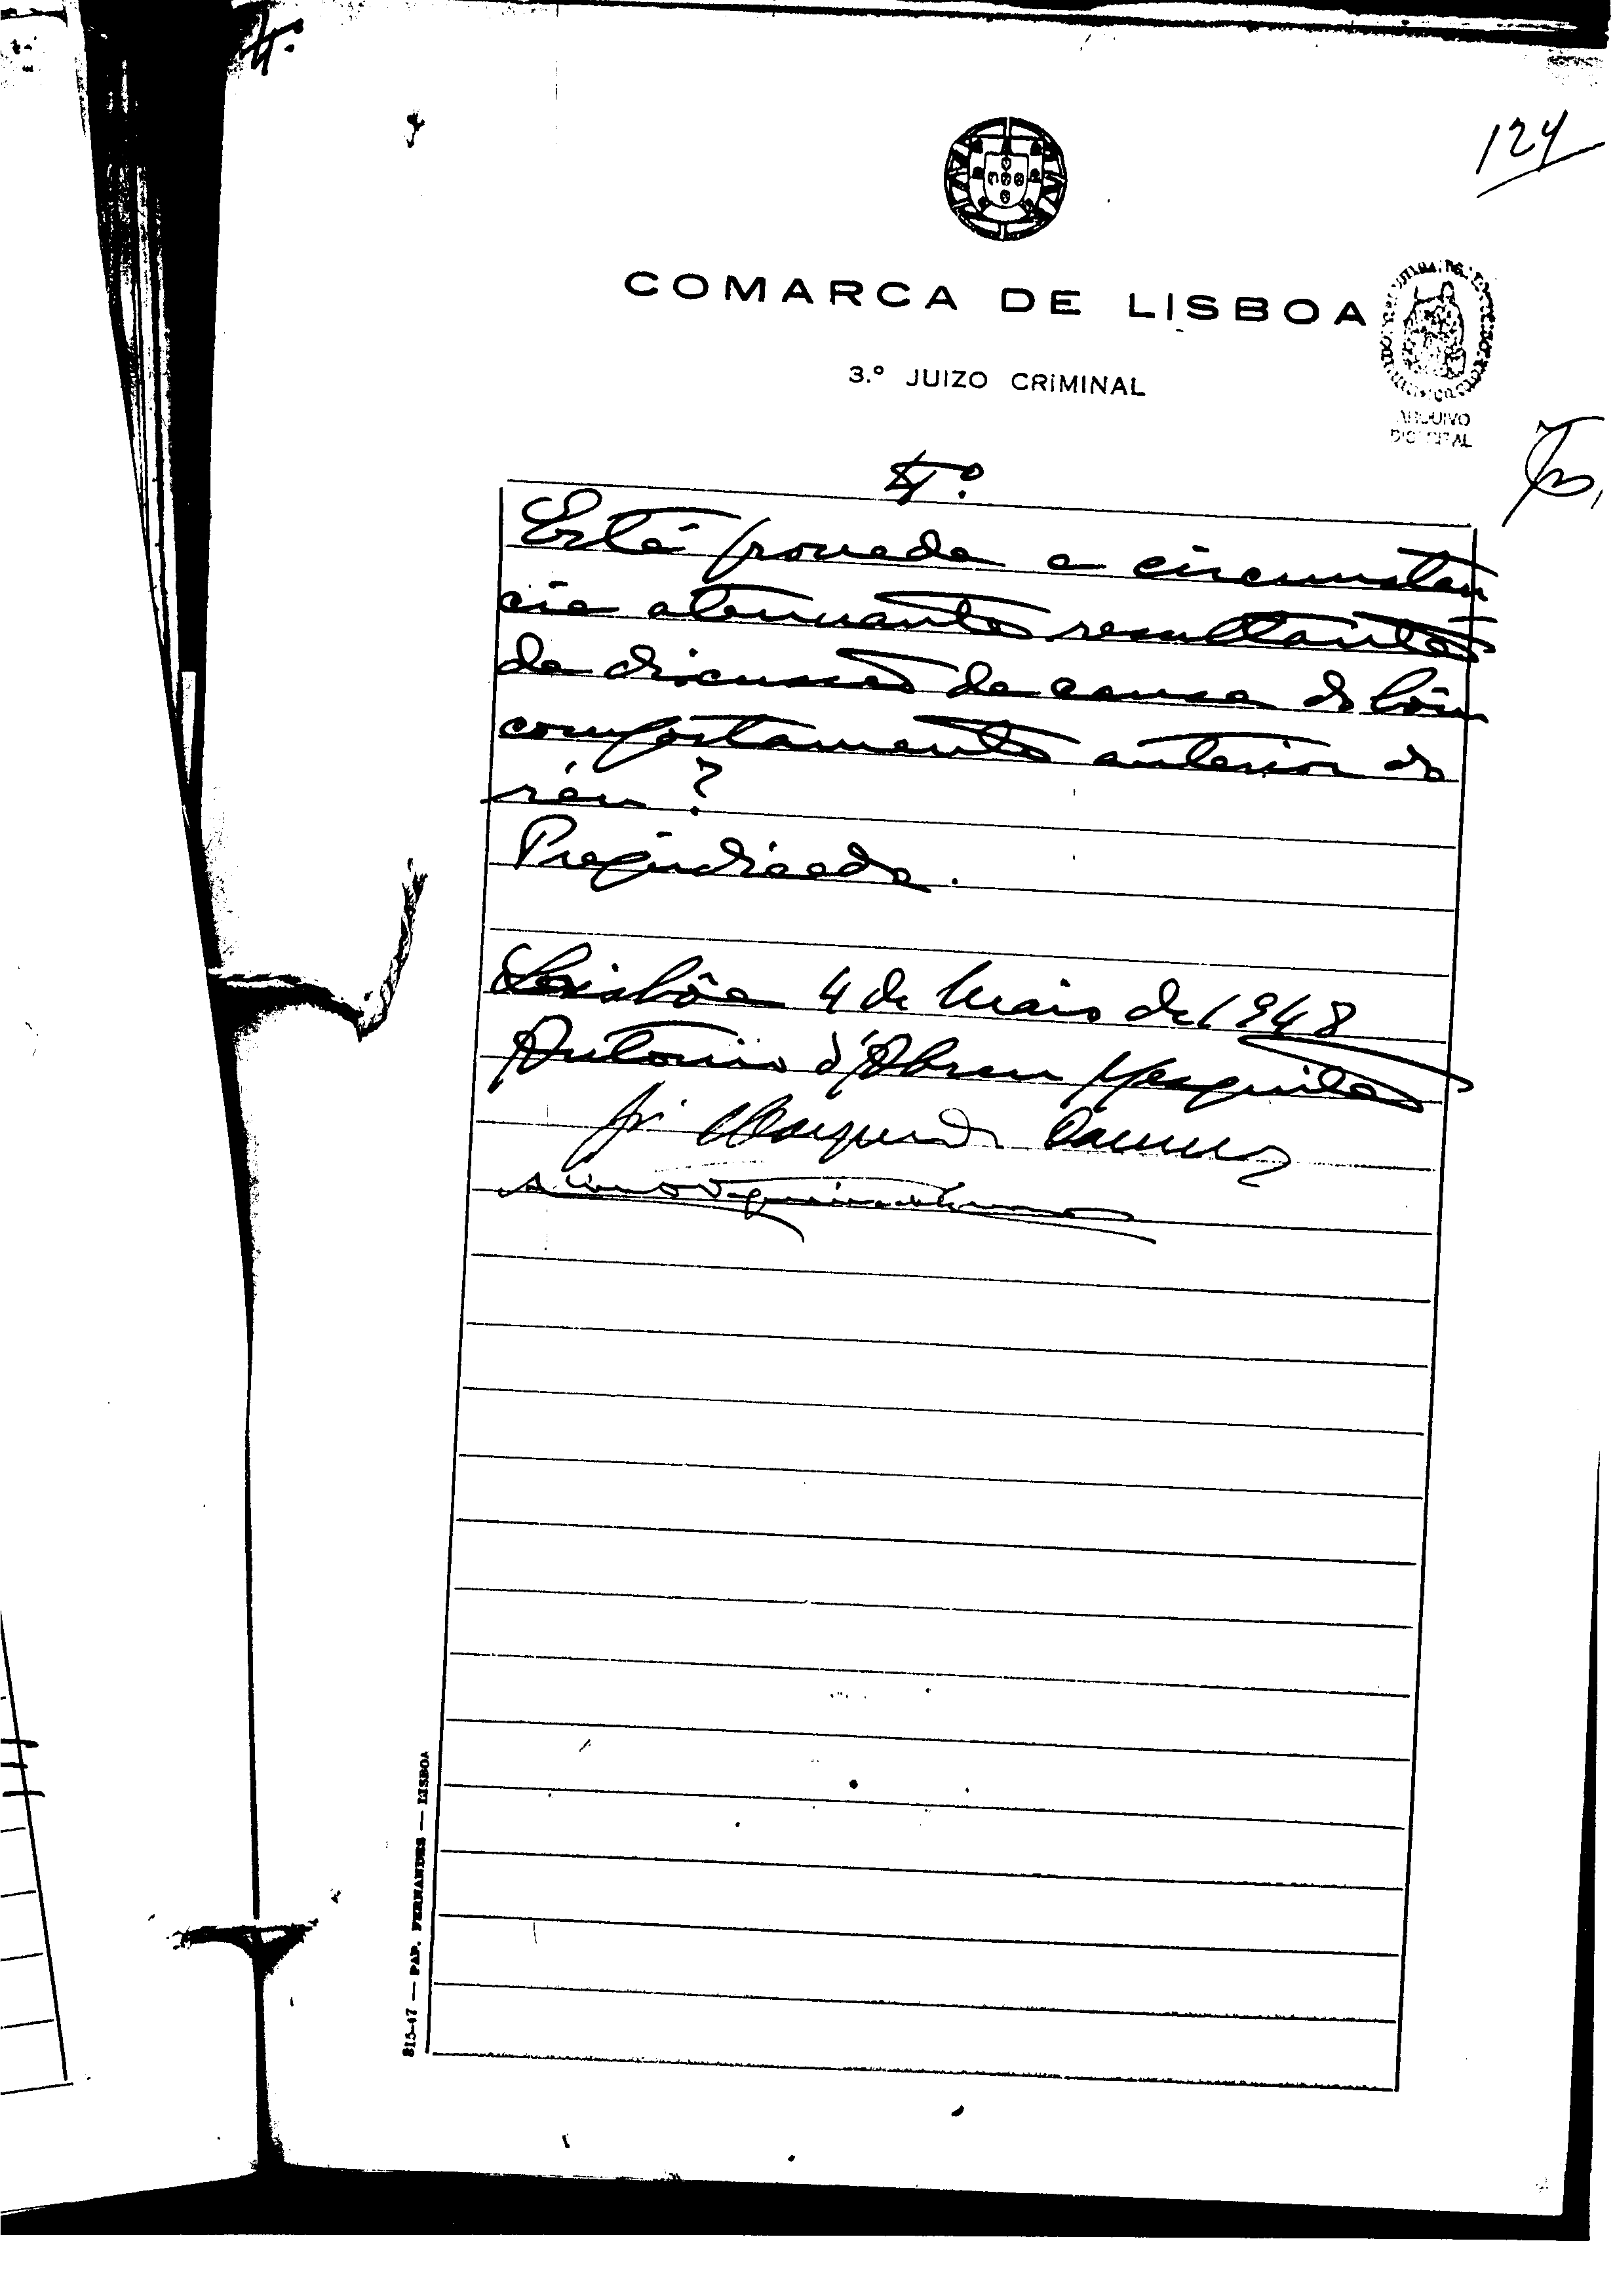 124
COMARCA DE LISBOA
3.º JUIZO CRIMINAL
ARQUIVO
DISTRITAL
4.º
Está provada a circunstan
cia atenuante resultante
da discussão da causa do bôm
comportamento anterior do
réu?
Prejudicado.
Lisbôa 4 de Maio de 1948
António d'Abreu Mesquita
815-47 — PAP. FERNANDES — LISBOA